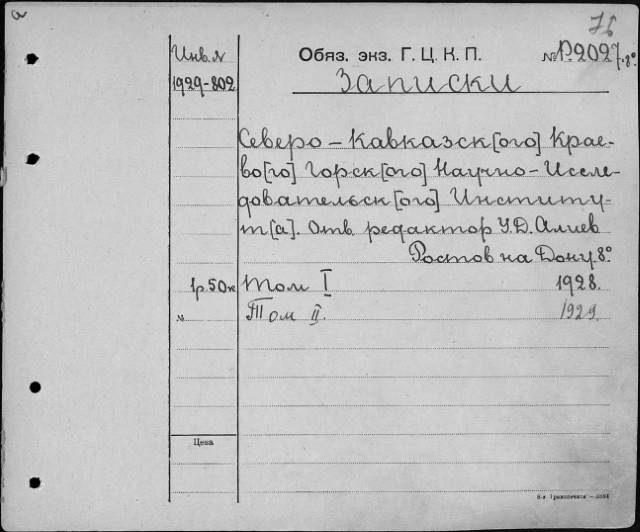 а
76
Инв. №
1929-802
Обяз. экз. Г. Ц. К. П.
№ P2027.8°
Записки
Северо-Кавказск[ого] Крае-
во[го] Горск[ого] Научно-Иссле-
довательск[ого] Институ-
т[а]. Отв. редактор У.Д. Алиев
Ростов на Дону. 8°
1р.50к Том I 1928.
№ Том II. 1929.
Цена